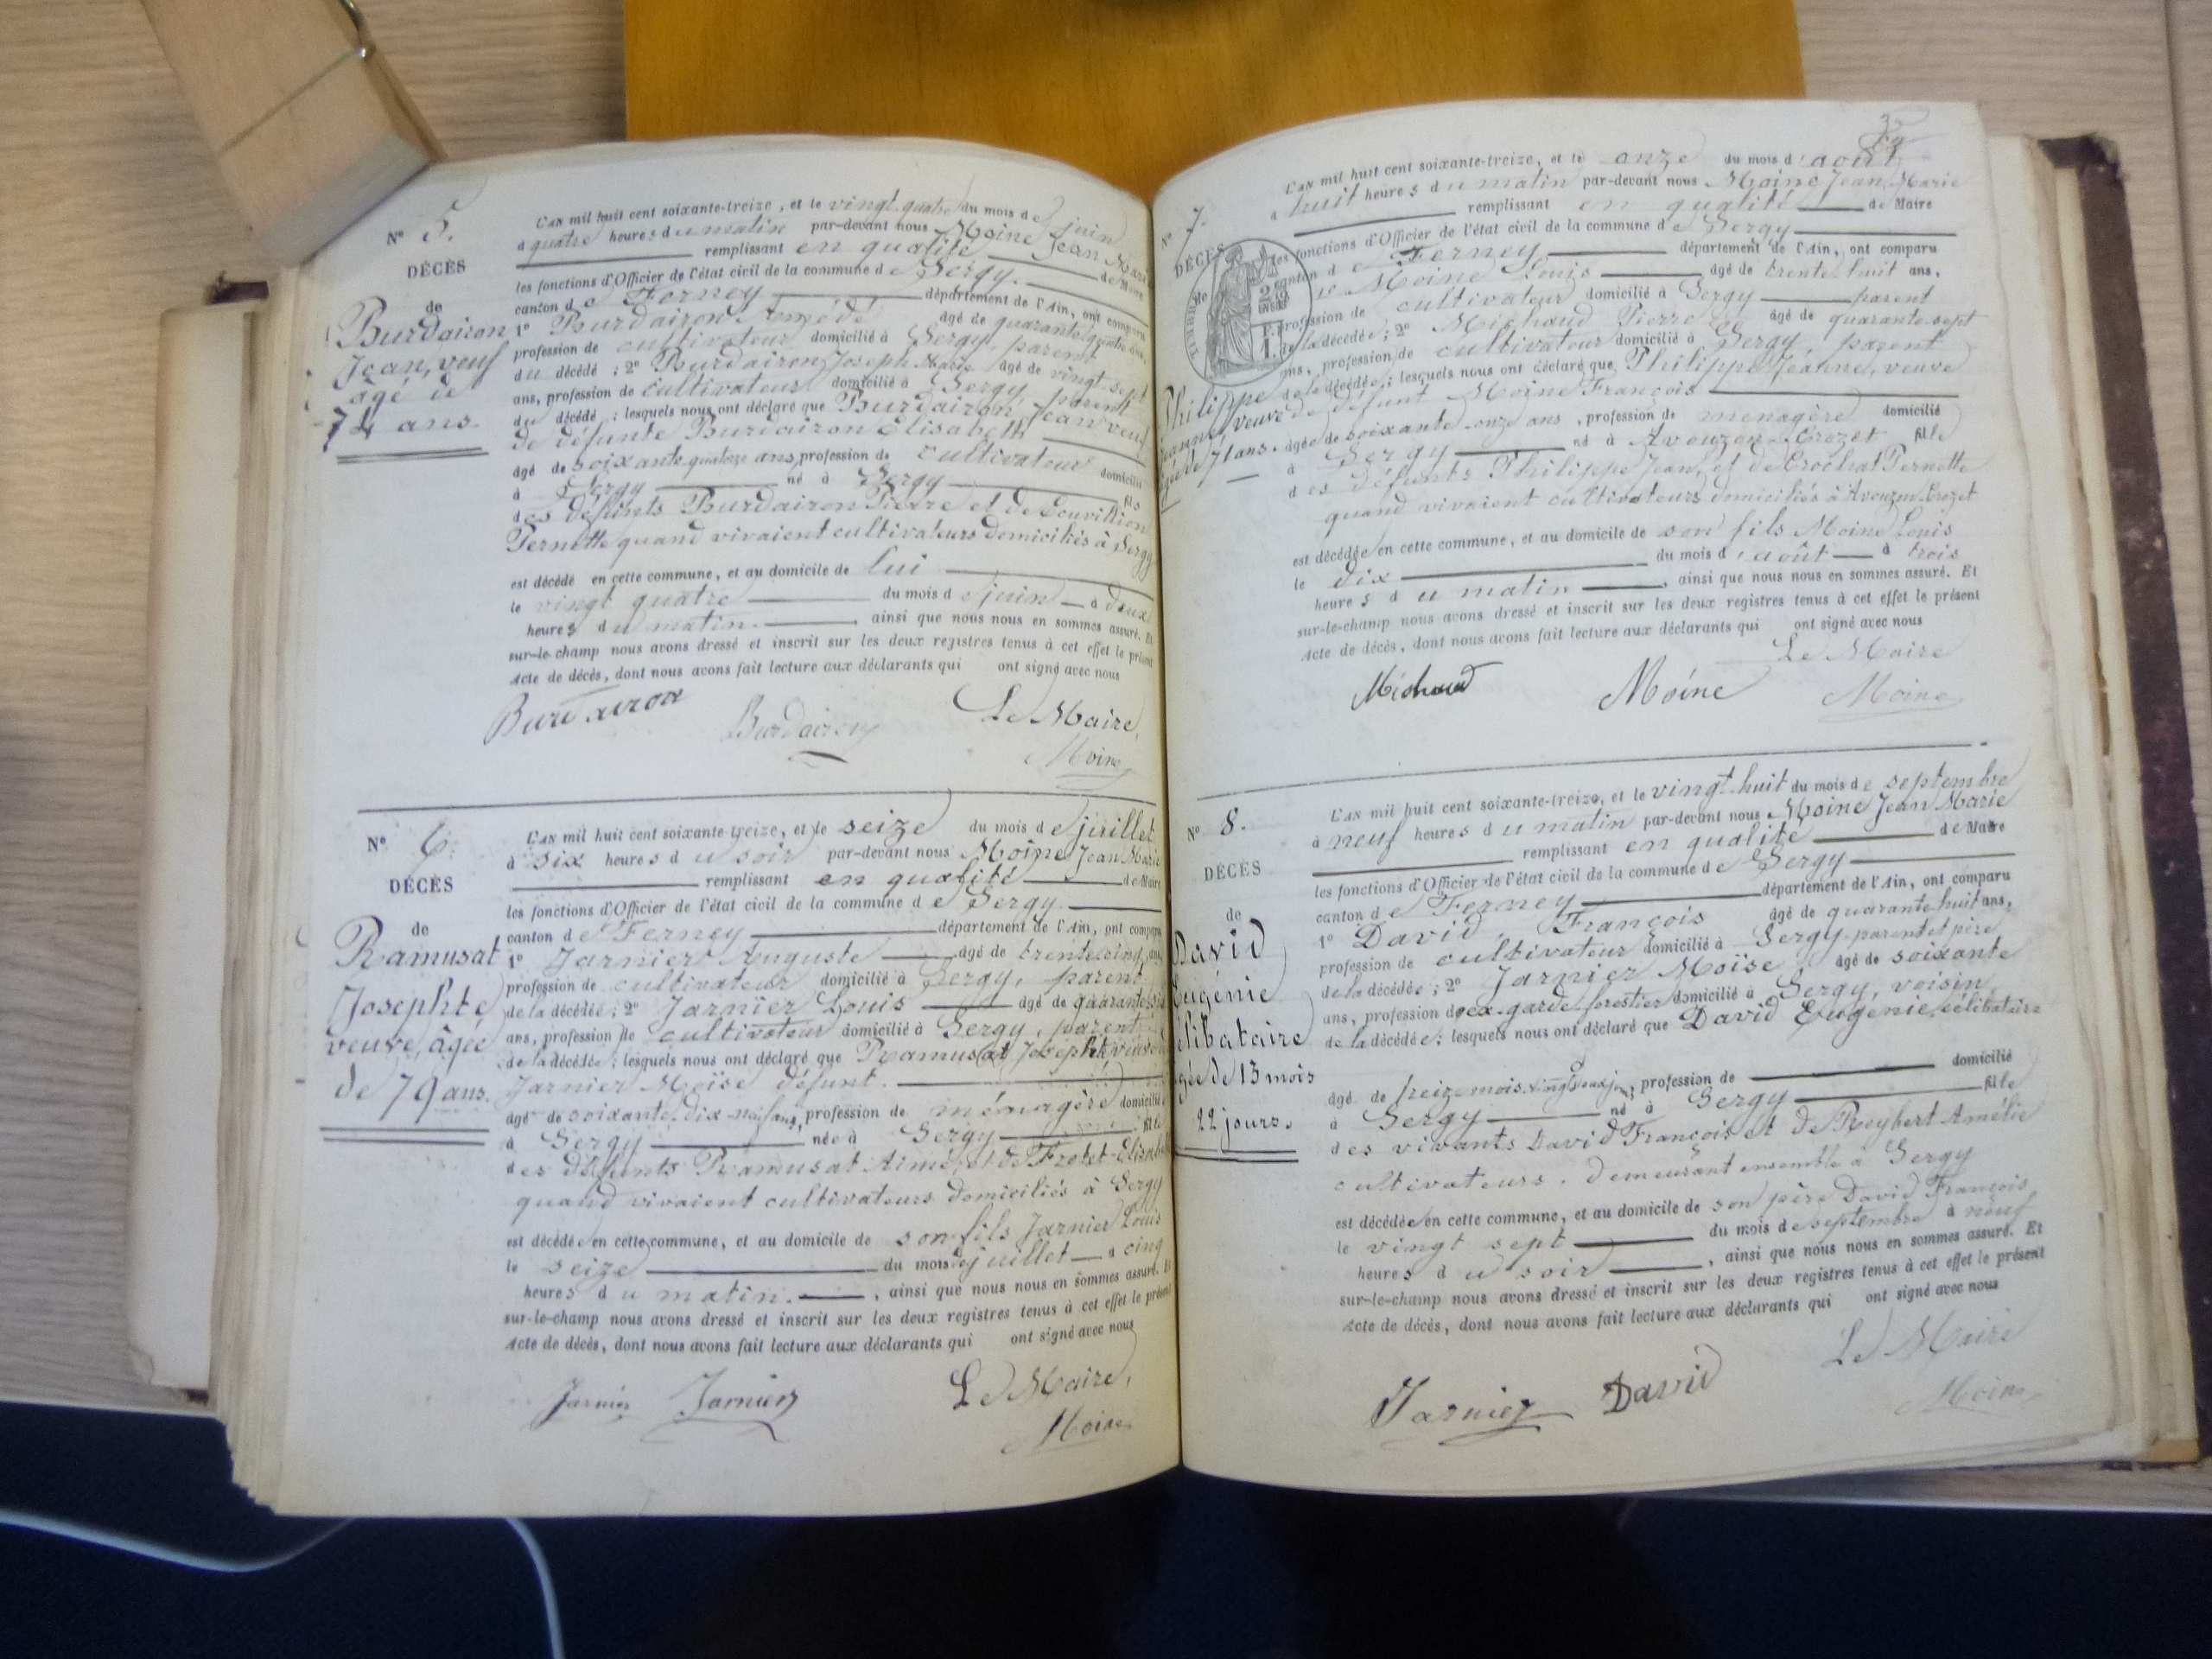 N° 5.
DÉCÈS
de
Burdairon
Jean, veuf
âgé de
74 ans.
L'AN mil huit cent soixante-treize, et le vingt quatre du mois de juin
à quatre heures du matin par-devant nous Moine Jean Marie
remplissant en qualité de Maire
les fonctions d'Officier de l'état civil de la commune de Sergy.
canton de Ferney département de l'Ain, ont comparu
1° Burdairon Amédé âgé de quarante quatre ans,
profession de cultivateur domicilié à Sergy, parent
du décédé ; 2° Burdairon Joseph Marie âgé de vingt-sept
ans, profession de cultivateur domicilié à Sergy parent
du décédé ; lesquels nous ont déclaré que Burdairon Jean veuf
de défunte Burdairon Elisabeth
âgé de soixante quatorze ans, profession de cultivateur domicilié
à Sergy né à Sergy fils
des défunts Burdairon Pierre et de Gouvillion
Pernette quand vivaient cultivateurs domiciliés à Sergy
est décédé en cette commune, et au domicile de lui
le vingt quatre du mois de juin à deux
heures du matin. ainsi que nous nous en sommes assuré. Et
sur-le-champ nous avons dressé et inscrit sur les deux registres tenus à cet effet le présent
Acte de décès, dont nous avons fait lecture aux déclarants qui ont signé avec nous
Burdairon Burdairon Le Maire,
Moine
N° 6.
DÉCÈS
de
Ramusat
Josephte
veuve, âgée
de 79 ans.
L'AN mil huit cent soixante-treize, et le seize du mois de juillet
à six heures du soir par-devant nous Moine Jean Marie
remplissant en qualité de Maire
les fonctions d'Officier de l'état civil de la commune de Sergy.
canton de Ferney département de l'Ain, ont comparu
1° Jarnier Auguste âgé de trente cinq ans,
profession de cultivateur domicilié à Sergy, parent
de la décédée ; 2° Jarnier Louis âgé de quarante
ans, profession de cultivateur domicilié à Sergy, parent
de la décédée ; lesquels nous ont déclaré que Ramusat Josephte veuve
Jarnier Moïse défunt.
âgé de soixante dix-neuf ans, profession de ménagère domicilié
à Sergy née à Sergy fille
des défunts Ramusat Aimé, et de
quand vivaient cultivateurs domiciliés à Sergy
est décédée en cette commune, et au domicile de son fils Jarnier Louis
le seize du mois de juillet à cinq
heures du matin. , ainsi que nous nous en sommes assuré. Et
sur-le-champ nous avons dressé et inscrit sur les deux registres tenus à cet effet le présent
Acte de décès, dont nous avons fait lecture aux déclarants qui ont signé avec nous
Jarnier Jarnier Le Maire,
Moine
N° 7.
DÉCÈS
de
Philippe
Jeanne, veuve
âgée de 71 ans.
L'AN mil huit cent soixante-treize, et le onze du mois d'août
à huit heures du matin par-devant nous Moine Jean Marie
remplissant en qualité de Maire
les fonctions d'Officier de l'état civil de la commune de Sergy
canton de Ferney département de l'Ain, ont comparu
1° Moine Louis âgé de trente huit ans,
profession de cultivateur domicilié à Sergy parent
de la décédée ; 2° Michaud Pierre âgé de quarante-sept
ans, profession de cultivateur domicilié à Sergy, parent
de la décédée ; lesquels nous ont déclaré que Philippe Jeanne, veuve
de défunt Moine François
âgée de soixante onze ans, profession de ménagère domicilié
à Sergy né à Avouzon-Crozet fille
des défunts Philippe Jean, et de Crochat Pernette
quand vivaient cultivateurs domiciliés à Avouzon-Crozet
est décédée en cette commune, et au domicile de son fils Moine Louis
le dix du mois d'août à trois
heures du matin , ainsi que nous nous en sommes assuré. Et
sur-le-champ nous avons dressé et inscrit sur les deux registres tenus à cet effet le présent
Acte de décès, dont nous avons fait lecture aux déclarants qui ont signé avec nous
Le Maire
Michaud Moine Moine
N° 8.
DÉCÈS
de
David
Eugénie
célibataire
âgée de 13 mois
22 jours.
L'AN mil huit cent soixante-treize, et le vingt-huit du mois de septembre
à neuf heures du matin par-devant nous Moine Jean Marie
remplissant en qualité de Maire
les fonctions d'Officier de l'état civil de la commune de Sergy
canton de Ferney département de l'Ain, ont comparu
1° David, François âgé de quarante huit ans,
profession de cultivateur domicilié à Sergy parent et père
de la décédée ; 2° Jarnier Moïse âgé de soixante
ans, profession d'ex-garde forestier domicilié à Sergy, voisin
de la décédée ; lesquels nous ont déclaré que David Eugénie, célibataire
âgé de treize mois vingt deux jours, profession de domicilié
à Sergy né à Sergy fille
des vivants David François et de Reybert Amélie
cultivateurs. demeurant ensemble à Sergy
est décédée en cette commune, et au domicile de son père David François
le vingt sept du mois de septembre à neuf
heures du soir , ainsi que nous nous en sommes assuré. Et
sur-le-champ nous avons dressé et inscrit sur les deux registres tenus à cet effet le présent
Acte de décès, dont nous avons fait lecture aux déclarants qui ont signé avec nous
Le Maire
Jarnier David Moine